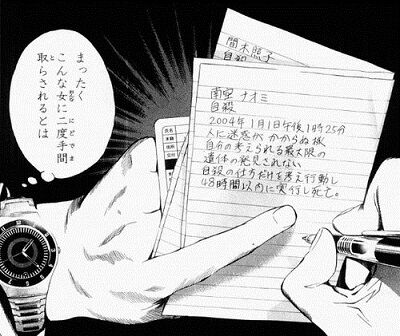 まったく
こんな女に二度手間
取らされるとは
間木照子
自殺
南空ナオミ
自殺
2004年1月1日午後1時25分
人に迷惑がかからぬ様
自分の考えられる最大限の
遺体の発見されない
自殺の仕方だけを考え行動し
48時間以内に実行し死亡。
氏名